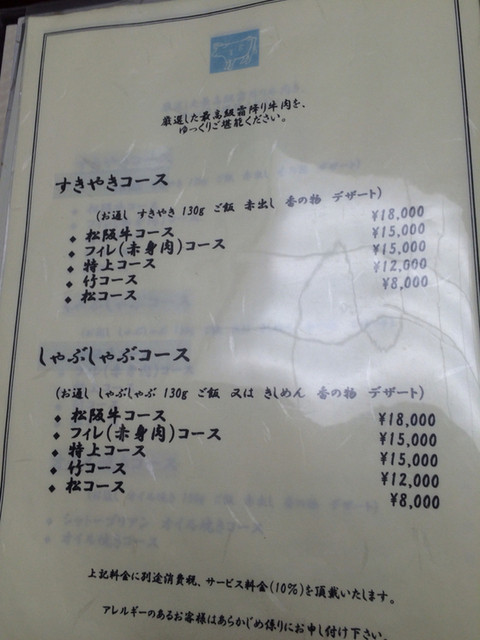 厳選した最高級霜降り牛肉を、
ゆっくりご堪能ください。
すきやきコース
(お通し すきやき 130g ご飯 赤出し 香の物 デザート)
◆ 松阪牛コース ¥18,000
◆ フィレ(赤身肉)コース ¥15,000
◆ 特上コース ¥15,000
◆ 竹コース ¥12,000
◆ 松コース ¥8,000
しゃぶしゃぶコース
(お通し しゃぶしゃぶ 130g ご飯 又は きしめん 香の物 デザート)
◆ 松阪牛コース ¥18,000
◆ フィレ(赤身肉)コース ¥15,000
◆ 特上コース ¥15,000
◆ 竹コース ¥12,000
◆ 松コース ¥8,000
◆ シャトーブリアン オイル焼きコース
◆ オイル焼きコース
上記料金に別途消費税、サービス料金(10%)を頂戴いたします。
アレルギーのあるお客様はあらかじめ係りにお申し付け下さい。